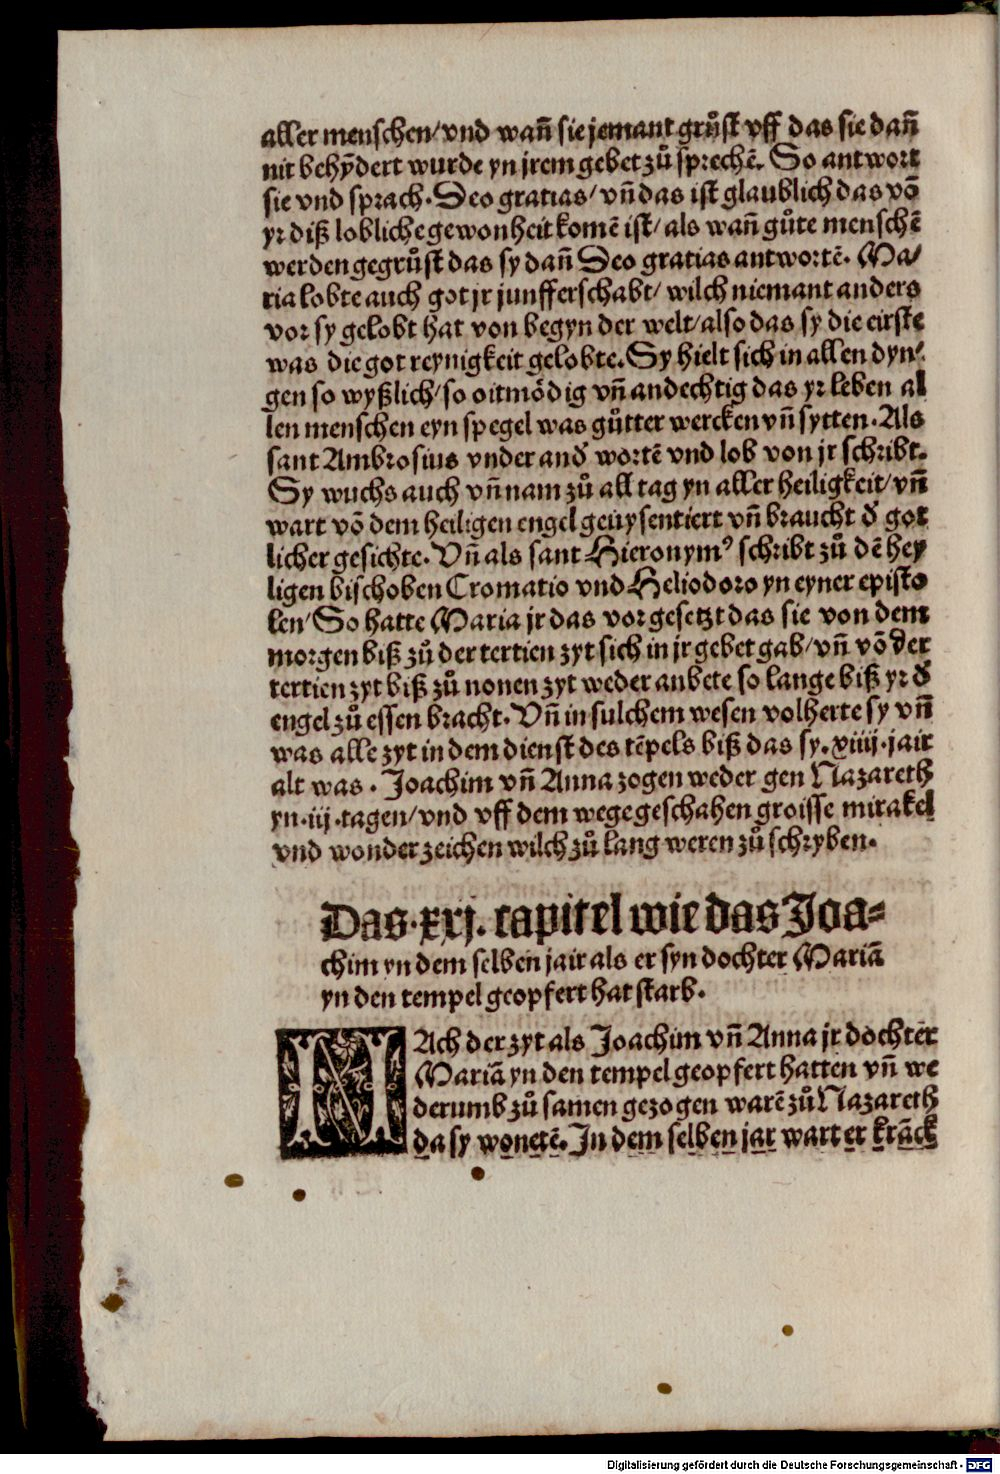 aller menschen/ vnd wañ sie jemant grůst vff das sie dañ
nit behỹdert wurde yn jrem gebet zů sprechẽ. So antwort
sie vnd sprach. Deo gratias/ vñ das ist glaublich das võ
yr diß lobliche gewonheit komẽ ist/ als wañ gůte menschẽ
werden gegrůst das sy dañ Deo gratias antwortẽ. Ma/
ria lobte auch got jr junfferschabt/ wilch niemant anders
vor sy gelobt hat von begyn der welt/ also das sy die eirste
was die got reynigkeit gelobte. Sy hielt sich in allen dyn/
gen so wyßlich/ so oitmödig vñ andechtig das yr leben al
len menschen eyn spegel was gůtter wercken vñ sytten. Als
sant Ambrosius vnder and̕ wortẽ vnd lob von jr schribt.
Sy wuchs auch vñ nam zů all tag yn aller heiligkeit/ vñ
wart võ dem heiligen engel geuysentiert vñ braucht d̕ got
licher gesichte. Vñ als sant Hieronymꝰ schribt zů dẽ hey
ligen bischoben Cromatio vnd Heliodoro yn eyner episto
len/ So hatte Maria jr das vorgesetzt das sie von dem
morgen biß zů der tertien zyt sich in jr gebet gab/ vñ võ der
tertien zyt biß zů nonen zyt weder anbete so lange biß yr d̕
engel zů essen bracht. Vñ in sulchem wesen volherte sy vñ
was alle zyt in dem dienst des tẽpels biß das sy. xiiij. jair
alt was. Joachim vñ Anna zogen weder gen Nazareth
yn. iij. tagen/ vnd vff dem wege geschahen groisse mirakel
vnd wonderzeichen wilch zů lang weren zů schryben.
Das. xxj. capitel wie das Joa-
chim yn dem selben jair als er syn dochter Mariã
yn den tempel geopfert hat starb.
NAch der zyt als Joachim vñ Anna jr dochter
Mariã yn den tempel geopfert hatten vñ we
derumb zů samen gezogen warẽ zů Nazareth
da sy wonetẽ. In dem selben jar wart er krãck
Digitalisierung gefördert durch die Deutsche Forschungsgemeinschaft - DFG